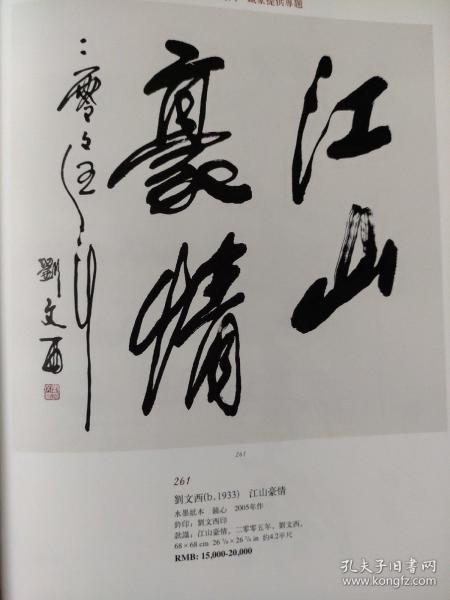 藏家提供專題
江山
豪情
二零零五年
劉文西
261
261
劉文西(b.1933) 江山豪情
水墨紙本 鏡心 2005年作
鈐印：劉文西印
款識：江山豪情，二零零五年，劉文西。
68×68 cm 26 ³/₄×26 ³/₄ in 約4.2平尺
RMB: 15,000-20,000
孔夫子旧书网